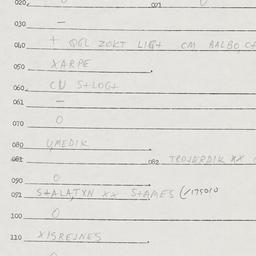 020. 021
030 —
040 + GGL ZOKT LIG+ CM BALBO, C+
050 XARPE
060. CU S+LOG+
061 —
070 O
080 UMEDIK
081 082 TROJERDIK XX
090 O
091 S+ALATXN XX S+AMES (/175010
100 O
110 XISREJNES